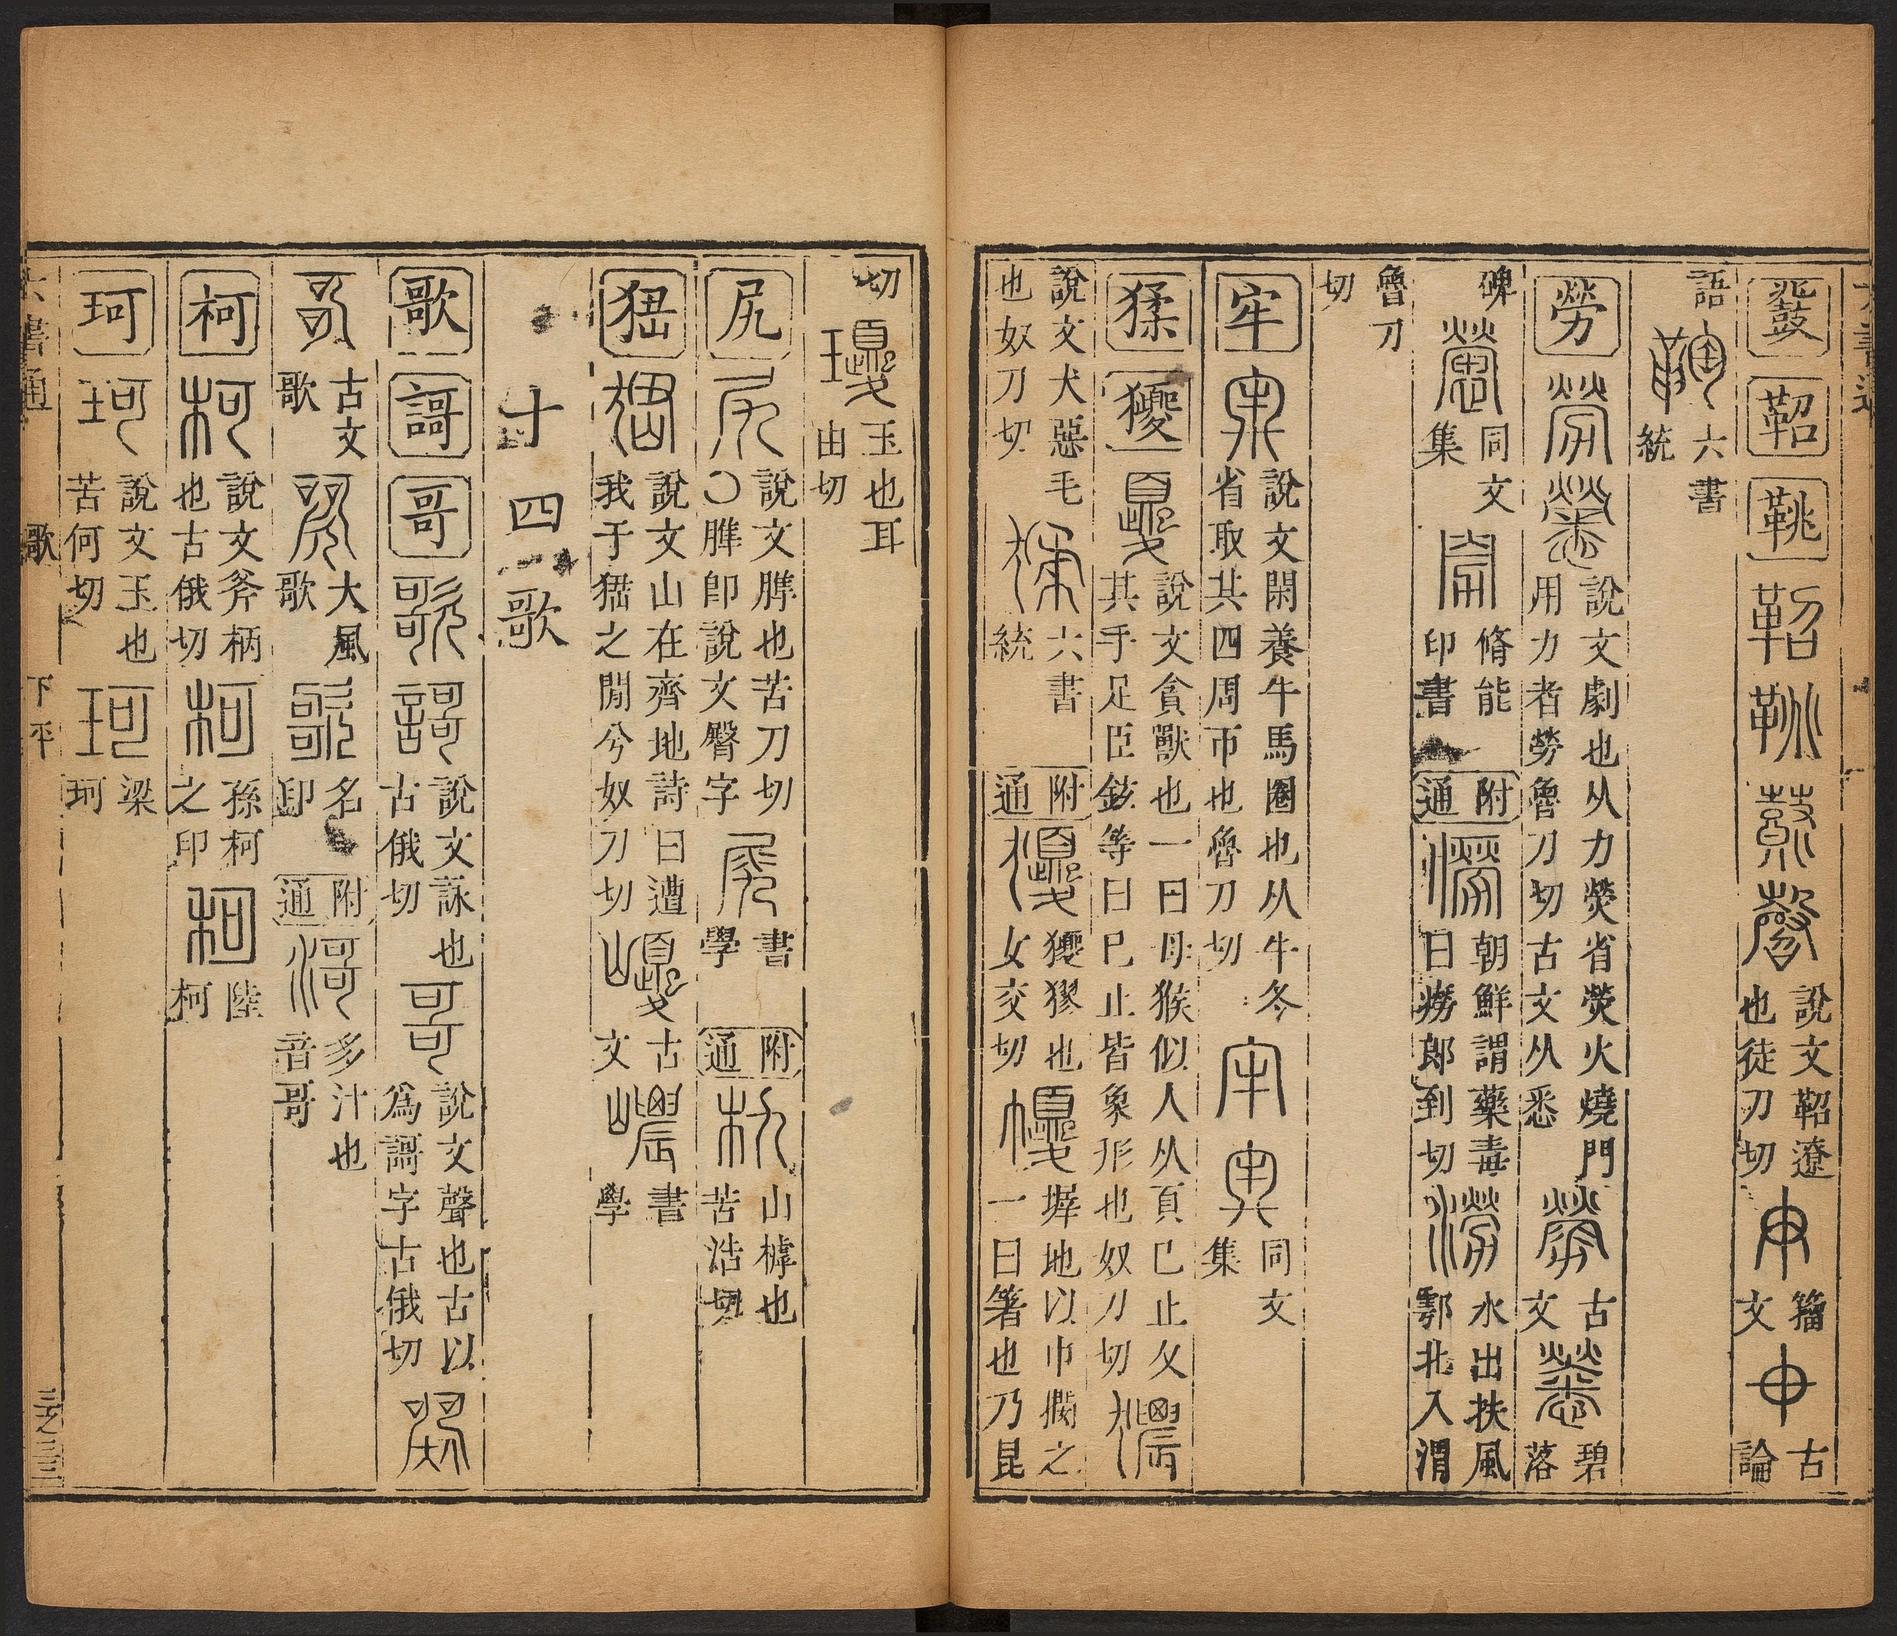 鼗 鞀 鞉 說文鞀遼也徒刀切 籀文 古論
語 六書統
勞 說文劇也从力熒省熒火燒門用力者勞魯刀切古文从悉 古文 碧落
碑 同文集 脩能印書 附通 朝鮮謂藥毒曰癆郎到切 水出扶風鄠北入渭
魯刀切
牢 說文閑養牛馬圈也从牛冬省取其四周帀也魯刀切 同文集
猱 獿 說文貪獸也一曰母猴似人从頁巳止夊其手足臣鉉等曰巳止皆象形也奴刀切
說文犬惡毛也奴刀切 六書統 附通 獿㺒也女交切 墀地以巾𢵧之一曰箸也乃昆
切 玉也耳由切
尻 說文脽也苦刀切〇脽卽說文臀字 書學 附通 山樗也苦浩切
峱 說文山在齊地詩曰遭我于峱之閒兮奴刀切 古文 書學
十四歌
歌 謌 哥 說文詠也古俄切 說文聲也古以爲謌字古俄切
古文歌 大風歌 名印 附通 多汁也音哥
柯 說文斧柄也古俄切 孫柯之印 陸柯
珂 說文玉也苦何切 梁珂
六書通 歌 下平 三之三三